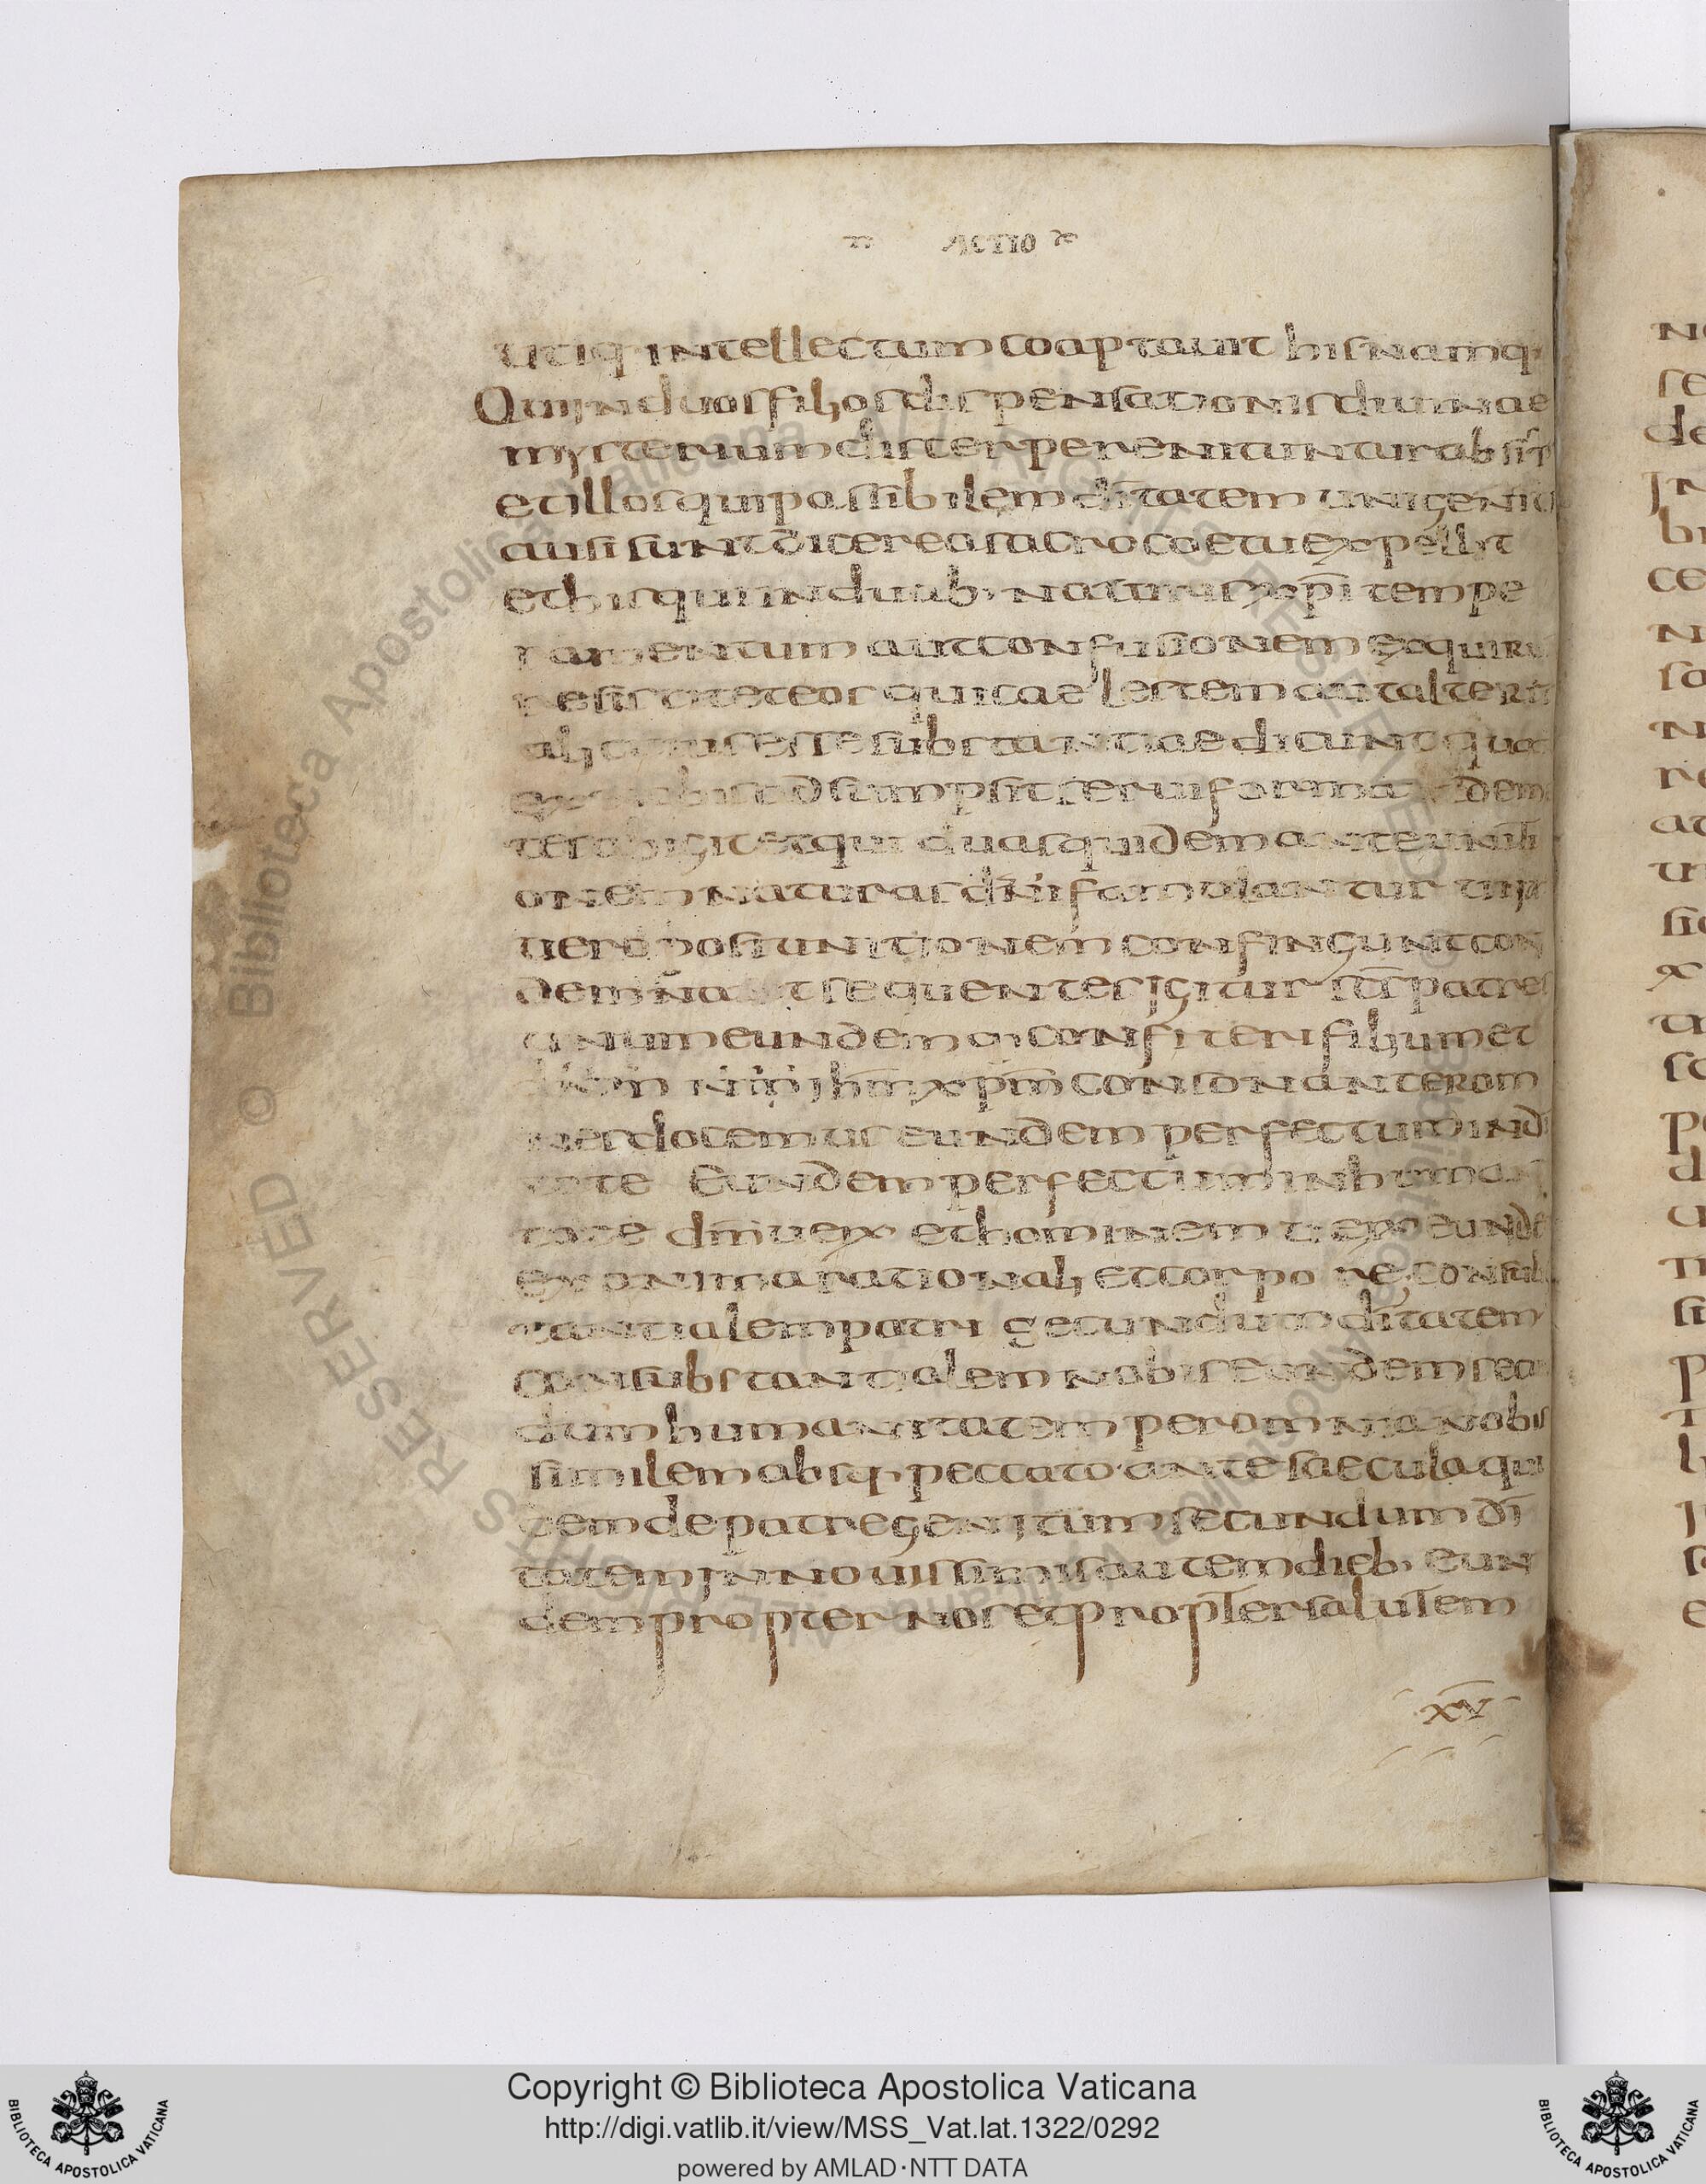 ACTIO
utiq· intellectum coaptauit his namq·
Qui in duos filios dispensationis diuinae
mysterium discerpere nituntur absist
et illos qui passibilem ditatem unigeniti
ausi sunt dicere a sacro coetu expellit
et his qui in duab· naturis xpi tempe
ramentum aut confusionem exquiru
resistit et eos qui caelestem aut alteri
alicuius esse substantiae dicunt qua
ex nobis adsumpsit serui forma dem
tes abicit et qui duas quidem ante uniti
onem naturas dni fabulantur una
uero post unitionem confingunt con
demnat sequentes igitur sci patres
unum eundem confiteri filium et
dnm nrm ihm xpm consonanter om
nes docemus eundem perfectum in di
tate Eundem perfectum in human
tate dm uere et hominem uere eunde
ex anima rationali et corpore consub
stantialem patri secundum ditatem
consubstantialem nobis eundem secun
dum humanitatem per omnia nobis
similem absq· peccato ante saecula qui
dem de patre genitum secundum di
tatem in nouissimis autem dieb· eun
dem propter nos et propter salutem
XV
© Biblioteca Apostolica Vaticana ALL RIGHTS RESERVED
Copyright © Biblioteca Apostolica Vaticana
http://digi.vatlib.it/view/MSS_Vat.lat.1322/0292
powered by AMLAD·NTT DATA
BIBLIOTECA APOSTOLICA VATICANA
BIBLIOTECA APOSTOLICA VATICANA